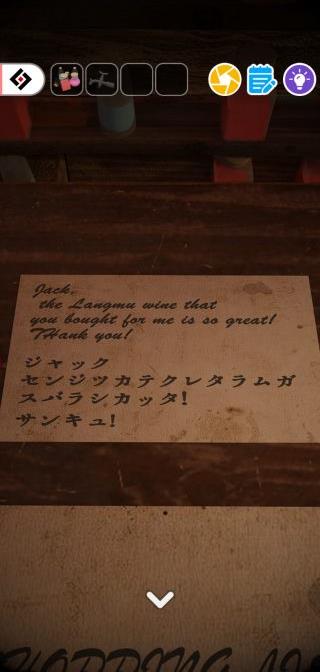 Jack,
the Langmu wine that
you bought for me is so great!
THank you!
ジャック
センジツカテクレタラムガ
スバラシカッタ!
サンキュ!